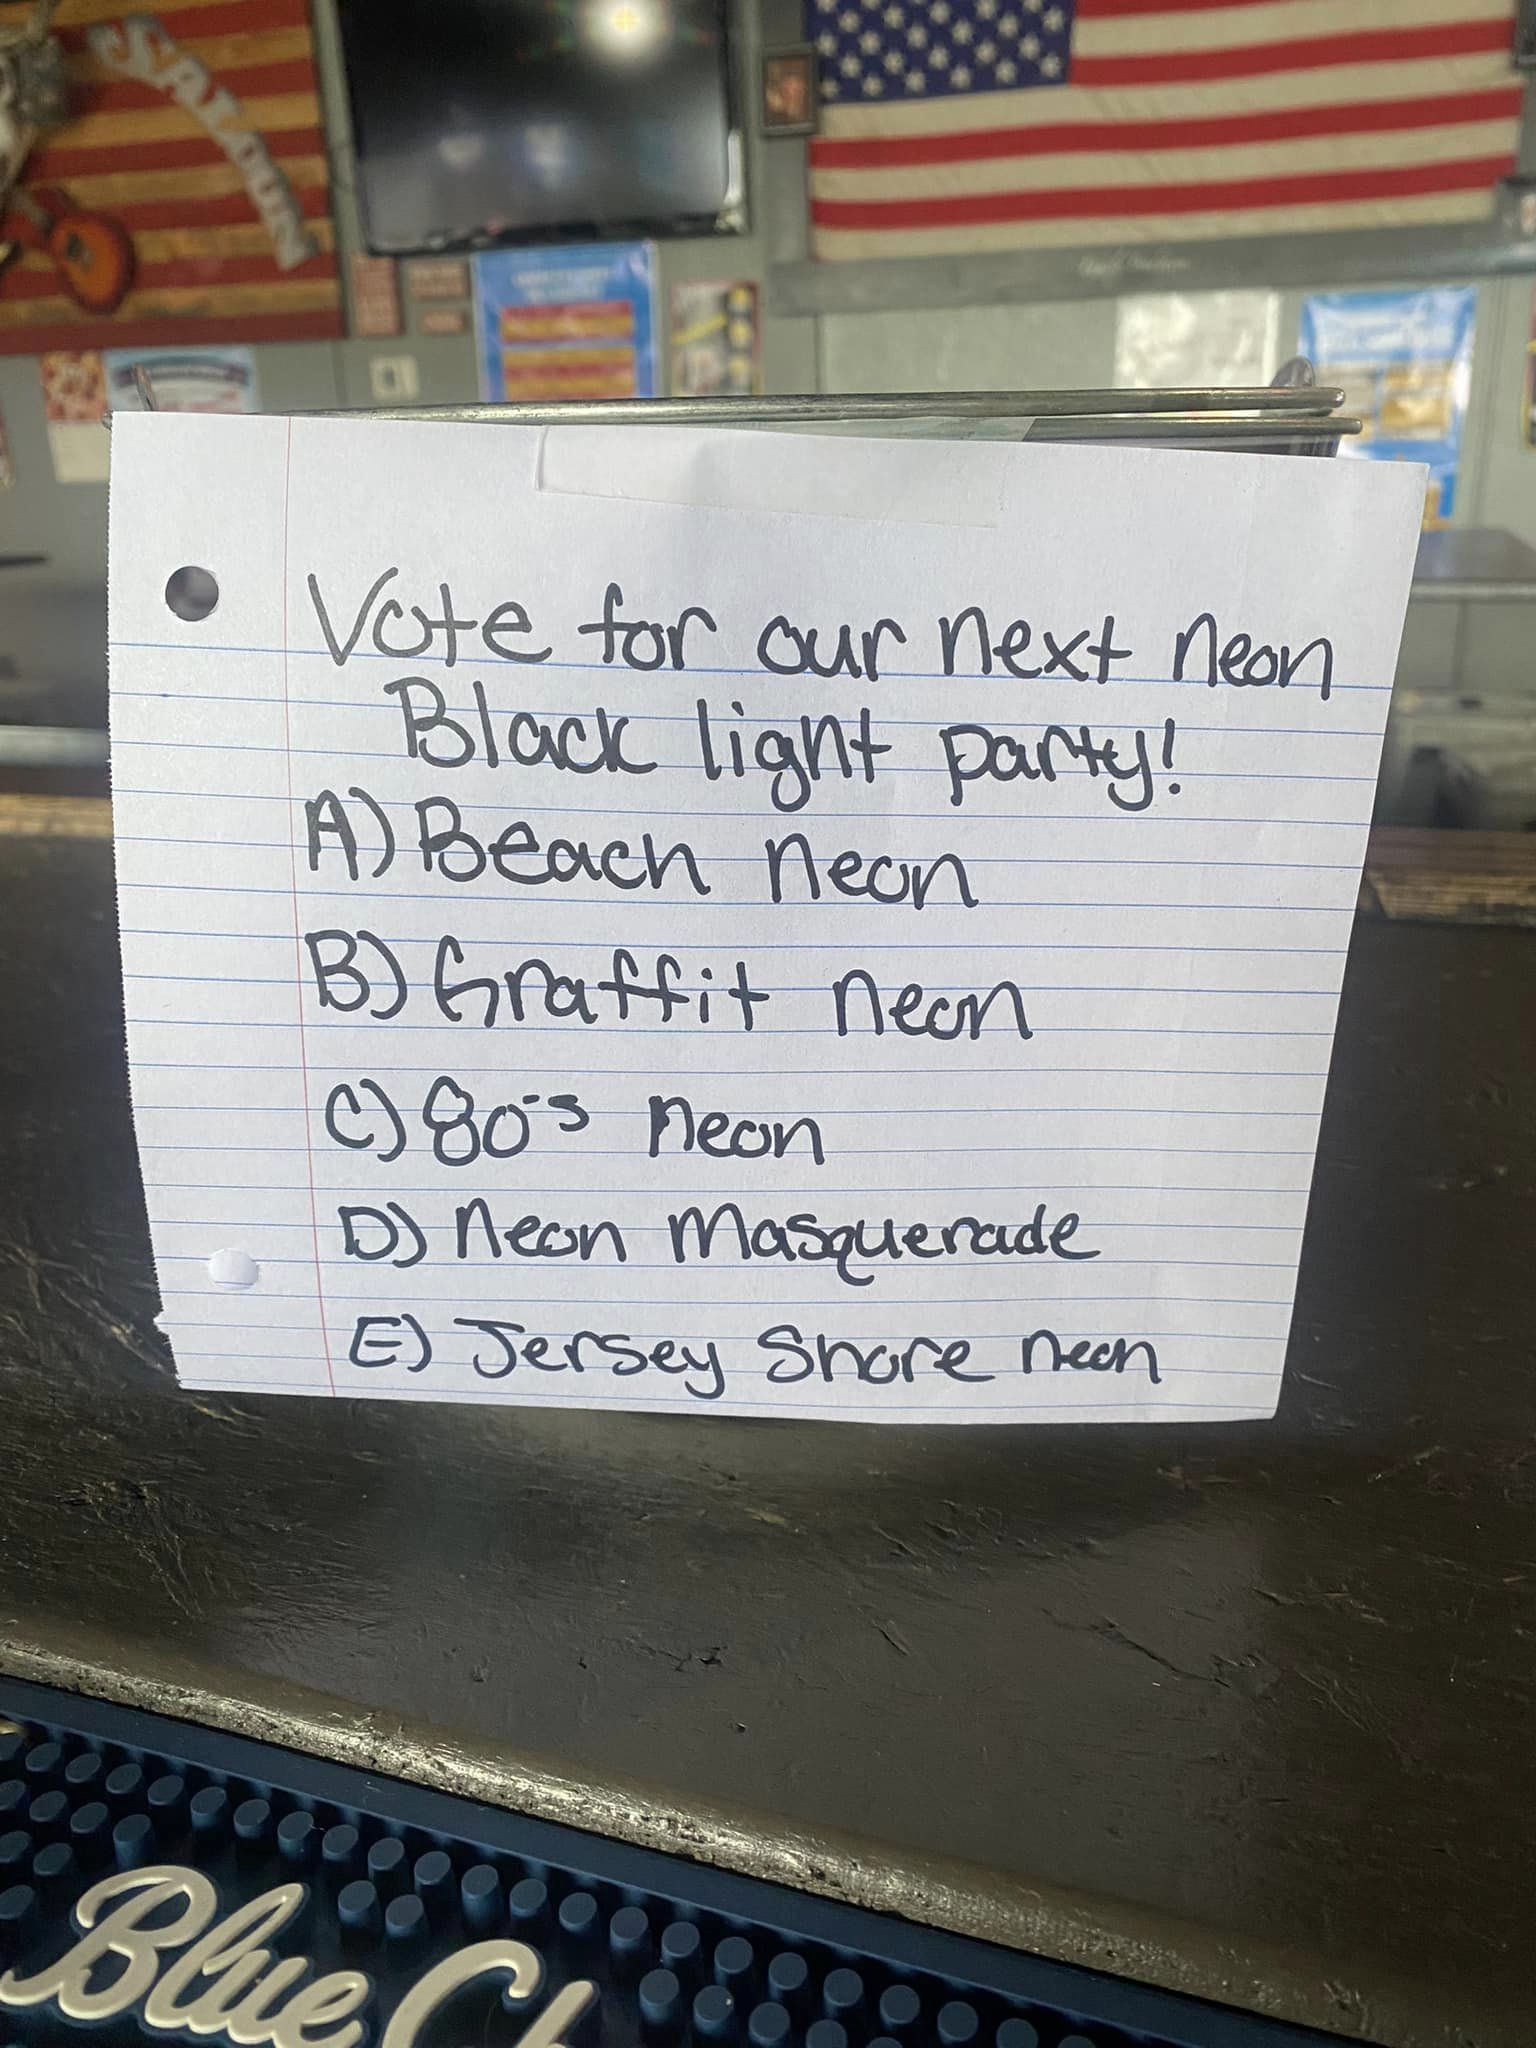 SALOON
Vote for our next neon
Black light party!
A) Beach neon
B) Graffit neon
C) 80's neon
D) neon Masquerade
E) Jersey Shore neon
Blue